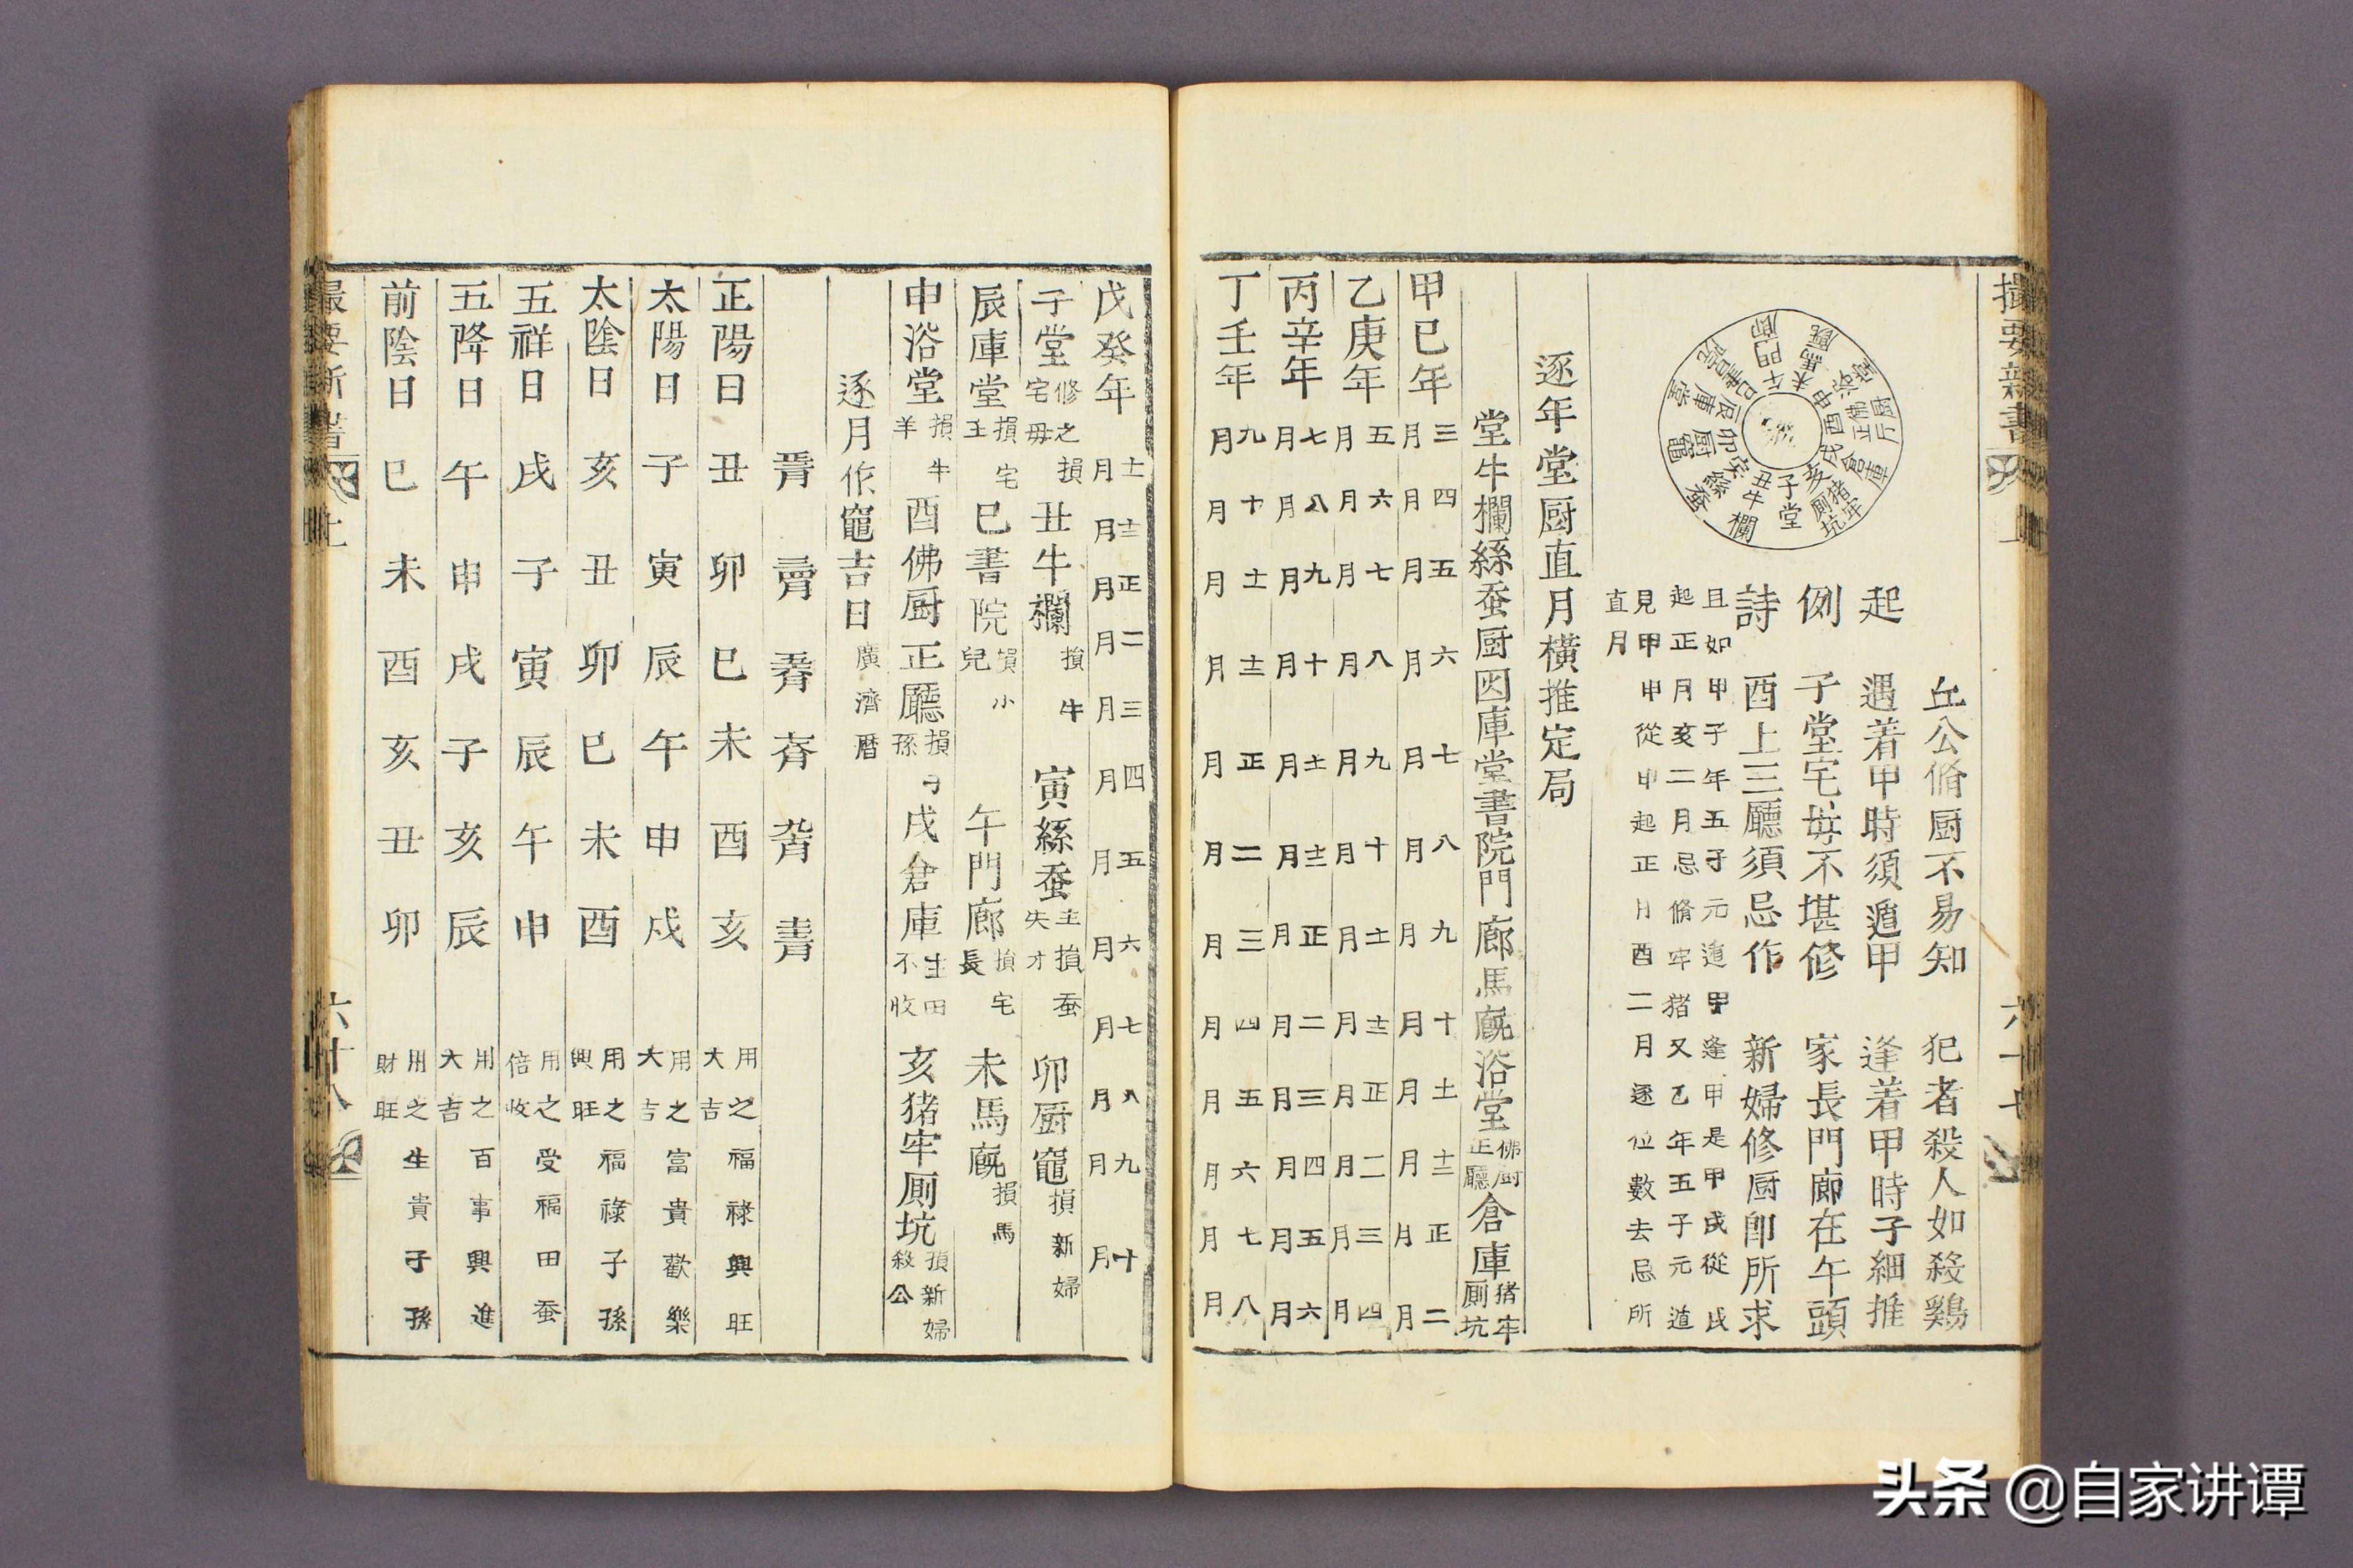 撮要新書
上
六十七
子堂
丑牛欄
寅絲蚕
卯厨竈
辰庫堂
巳書院
午門廊
未馬廐
申浴堂
酉佛厨正厅
戌倉庫
亥猪牢厠坑
丘公脩厨不易知 犯者殺人如殺鷄
起 遇着甲時須遁甲 逢着甲時子細推
例 子堂宅毋不堪修 家長門廊在午頭
詩 酉上三廳須忌作 新婦修厨卽所求
且如甲子年五子元遁甲逢甲是甲戌從戌
起正月亥二月忌脩牢猪又乙年五子元遁
見甲申從申起正月酉二月逐位數去忌所
直月
逐年堂厨直月橫推定局
堂牛欄絲蚕厨囚庫堂書院門廊馬廐浴堂佛厨正廳倉庫猪牢厠坑
甲巳年 三月 四月 五月 六月 七月 八月 九月 十月 十一月 十二月 正月 二月
乙庚年 五月 六月 七月 八月 九月 十月 十一月 十二月 正月 二月 三月 四月
丙辛年 七月 八月 九月 十月 十一月 十二月 正月 二月 三月 四月 五月 六月
丁壬年 九月 十月 十一月 十二月 正月 二月 三月 四月 五月 六月 七月 八月
戊癸年 十一月 十二月 正月 二月 三月 四月 五月 六月 七月 八月 九月 十月
子堂 修之損宅毋 丑牛欄 損牛 寅絲蚕 主損蚕失才 卯厨竈 損新婦
辰庫堂 損宅主 巳書院 損小兒 午門廊 損宅長 未馬廐 損馬
申浴堂 損牛羊 酉佛厨正廳 損子孫 戌倉庫 主田不收 亥猪牢厠坑 損新婦殺公
逐月作竈吉日 廣濟曆
正陽日 丑 卯 巳 未 酉 亥 用之福祿興旺大吉
太陽日 子 寅 辰 午 申 戌 用之富貴歡樂大吉
太陰日 亥 丑 卯 巳 未 酉 用之福祿子孫興旺
五祥日 戌 子 寅 辰 午 申 用之受福田蚕倍收
五降日 午 申 戌 子 亥 辰 用之百事興進大吉
前陰日 巳 未 酉 亥 丑 卯 用之生貴子孫財旺
最要新書
上
六十八
头条 @自家讲谭